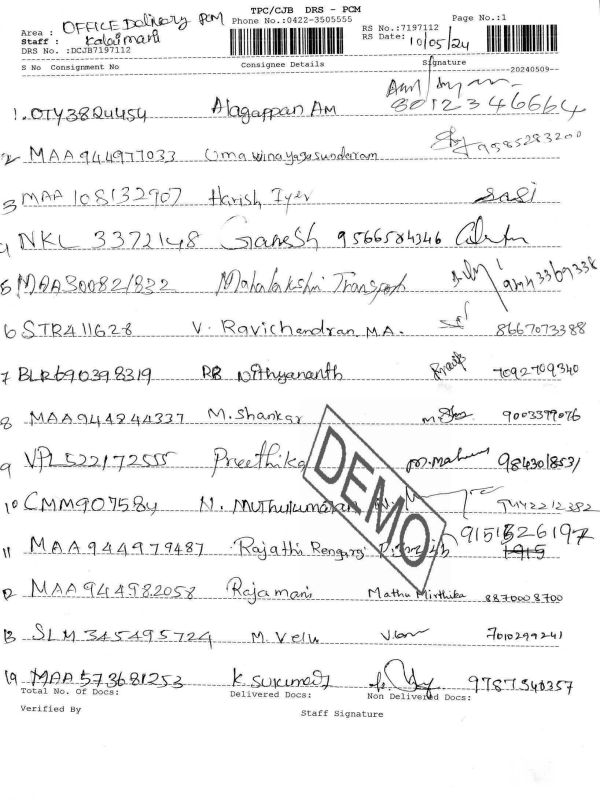 TPC/CJB DRS - PCM
Area : OFFICE Delivery PCM Phone No.:0422-3505555 RS No.:7197112 Page No.:1
Staff : Kalaimani RS Date: 10/05/24
DRS No. :DCJB7197112
S No Consignment No Consignee Details Signature
20240509
8012346664
1. OTY3824454 Alagappan AM
2 MAA944977033 Umavinayagasundaram 9585283200
3 MAA 108132907 Harish Iyer sasi
4 NKL 3372148 Ganesh 9566584346
5 MAA300821832 Mahalakshmi Transport 92443369338
6 STR411628 V. Ravichandran MA. 8667073388
7 BLR690398319 RB Nithyananth 7092709340
8 MAA944844337 M. Shankar 9003379076
9 VPL522172555 Preethika 9843018531
10 CMM907584 N. Muthukumaran
DEMO
9151326197
11 MAA944979487 Rajathi 1915
12 MAA944982058 Rajamani Mathu Mirthika 8870008700
13 SLM 345495724 M. Velu 7010299241
14 MAA573681253 K. Sukumar 9787340357
Total No. Of Docs: Delivered Docs: Non Delivered Docs:
Verified By Staff Signature